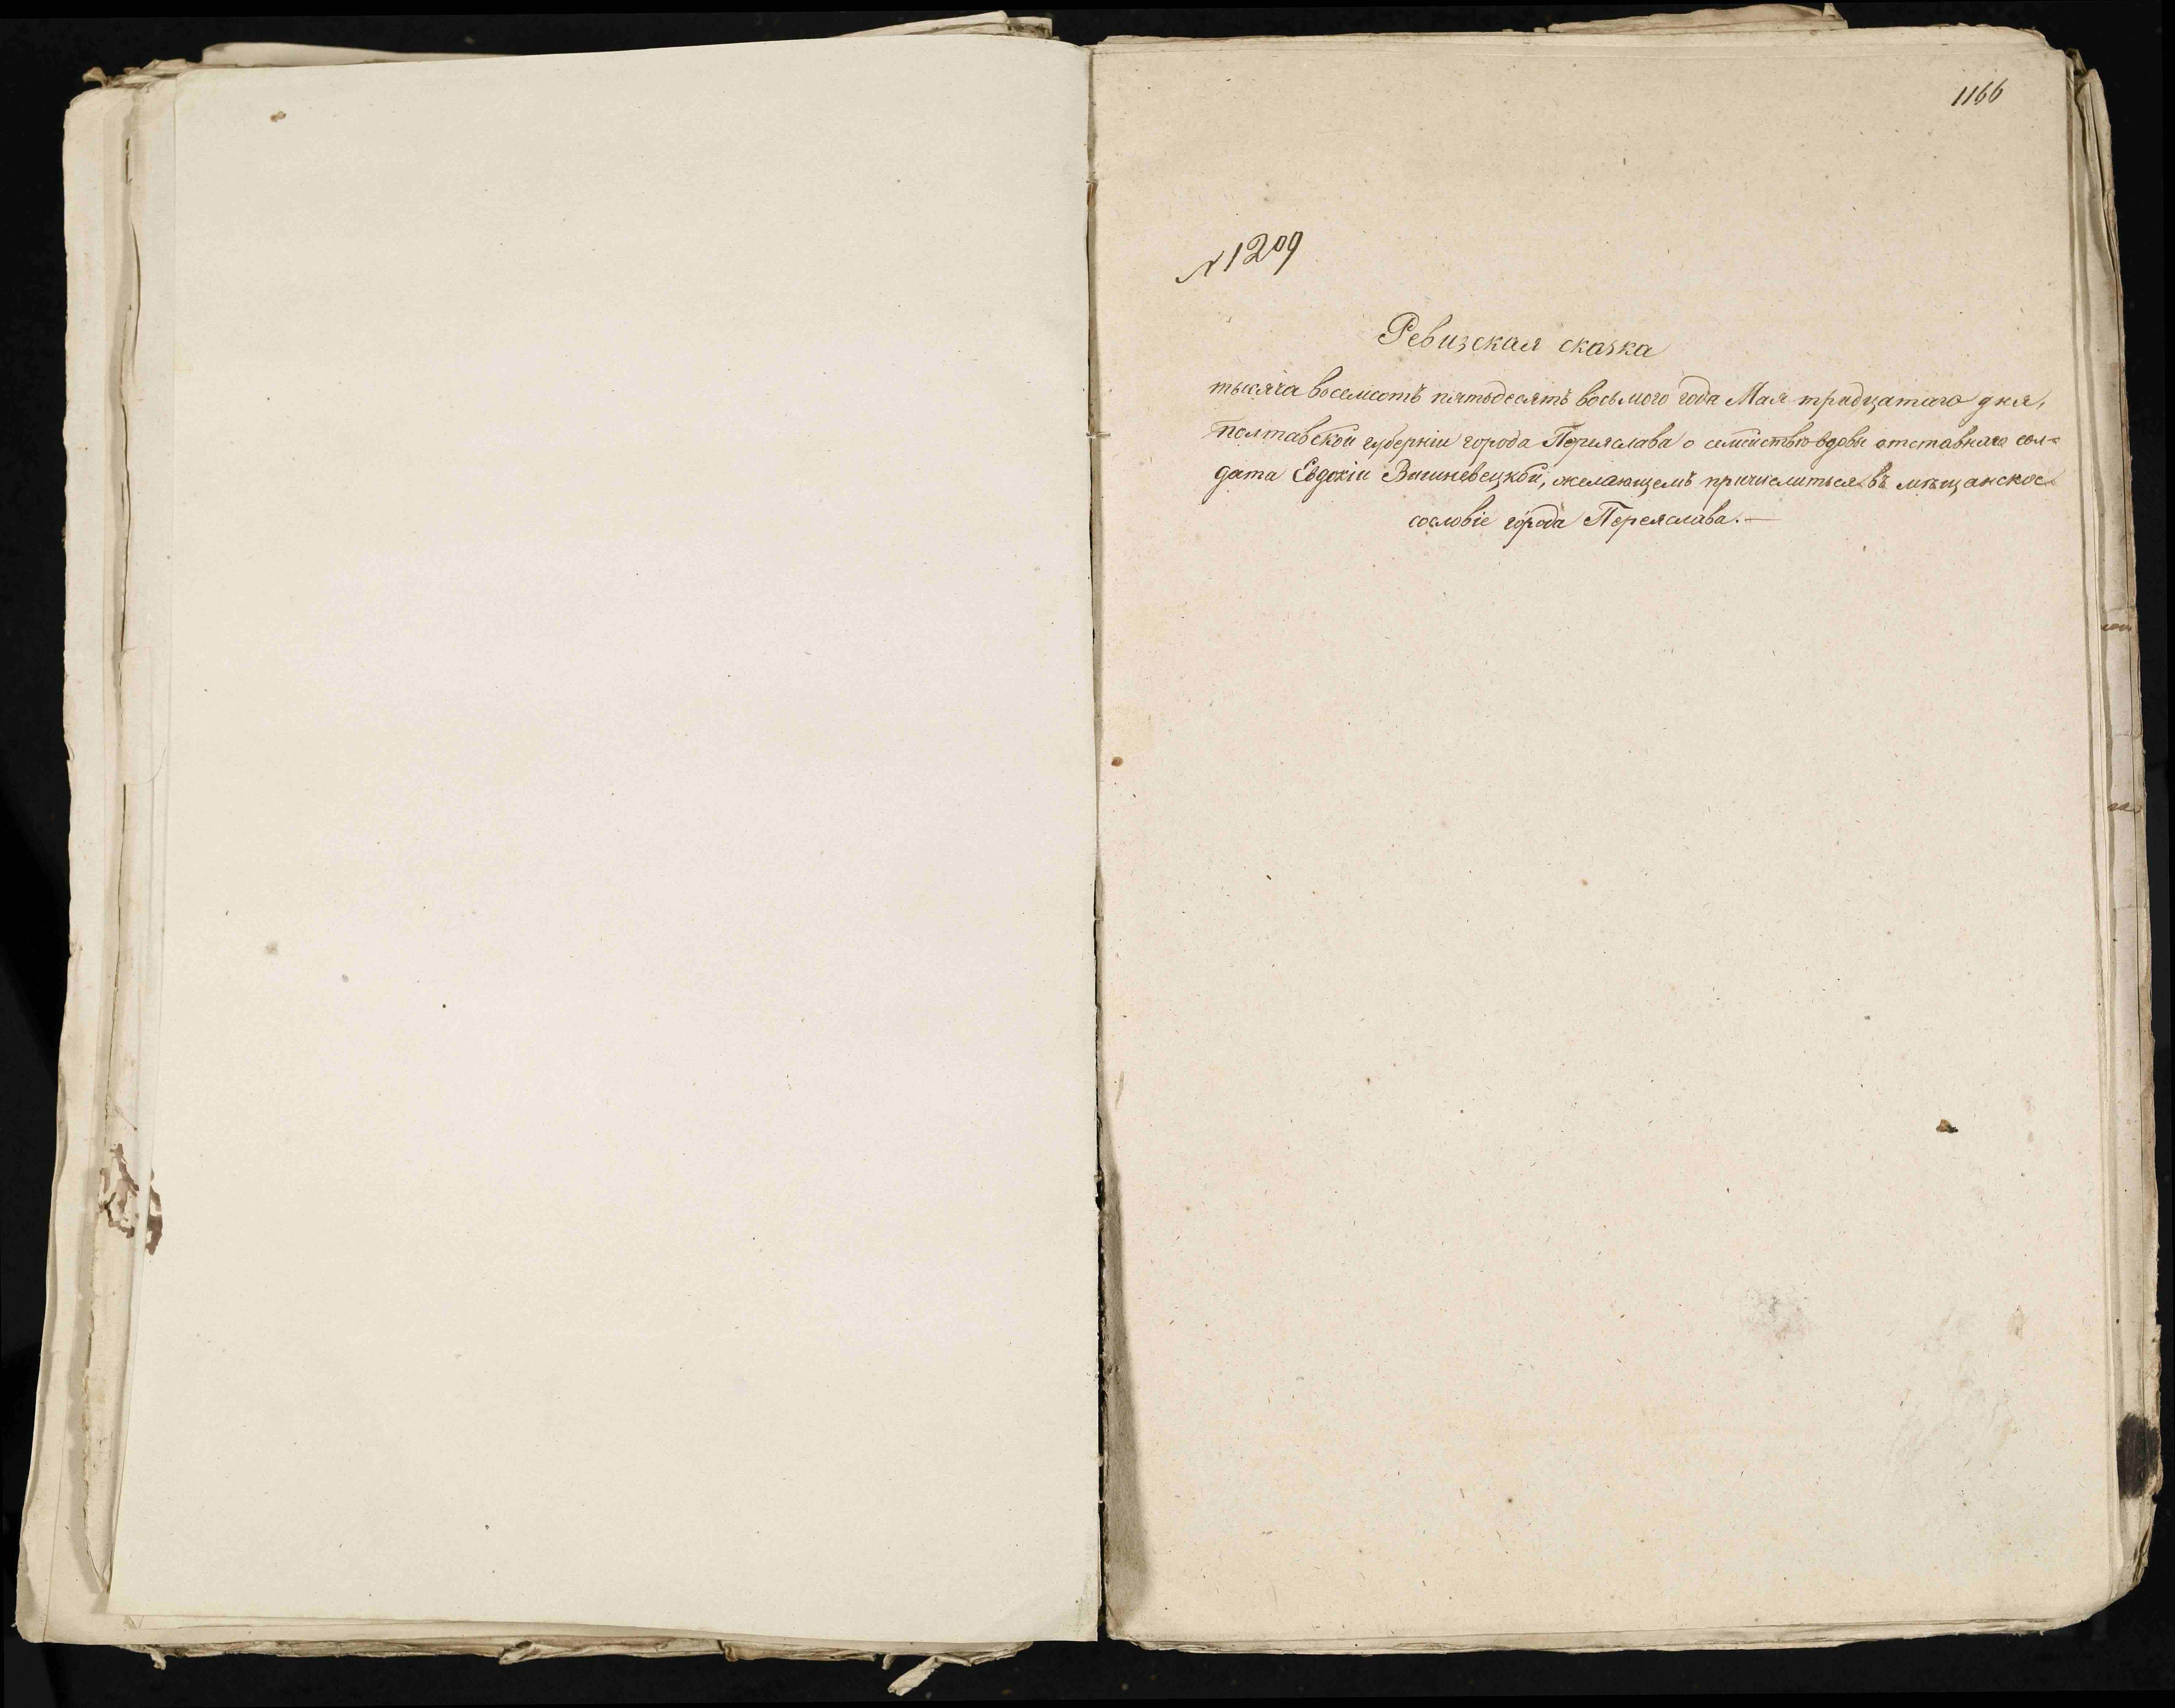 1166
N 1209
Ревизская сказка
тысяча восемсотъ пятьдесятъ восьмого года Мая тридцатаго дня,
полтавской губерніи города Переяслава о семействѣ вдовы отставнаго сол=
дата Евдокіи Вишневецкой, желающемъ причислиться въ мѣщанское
сословіе города Переяслава.—